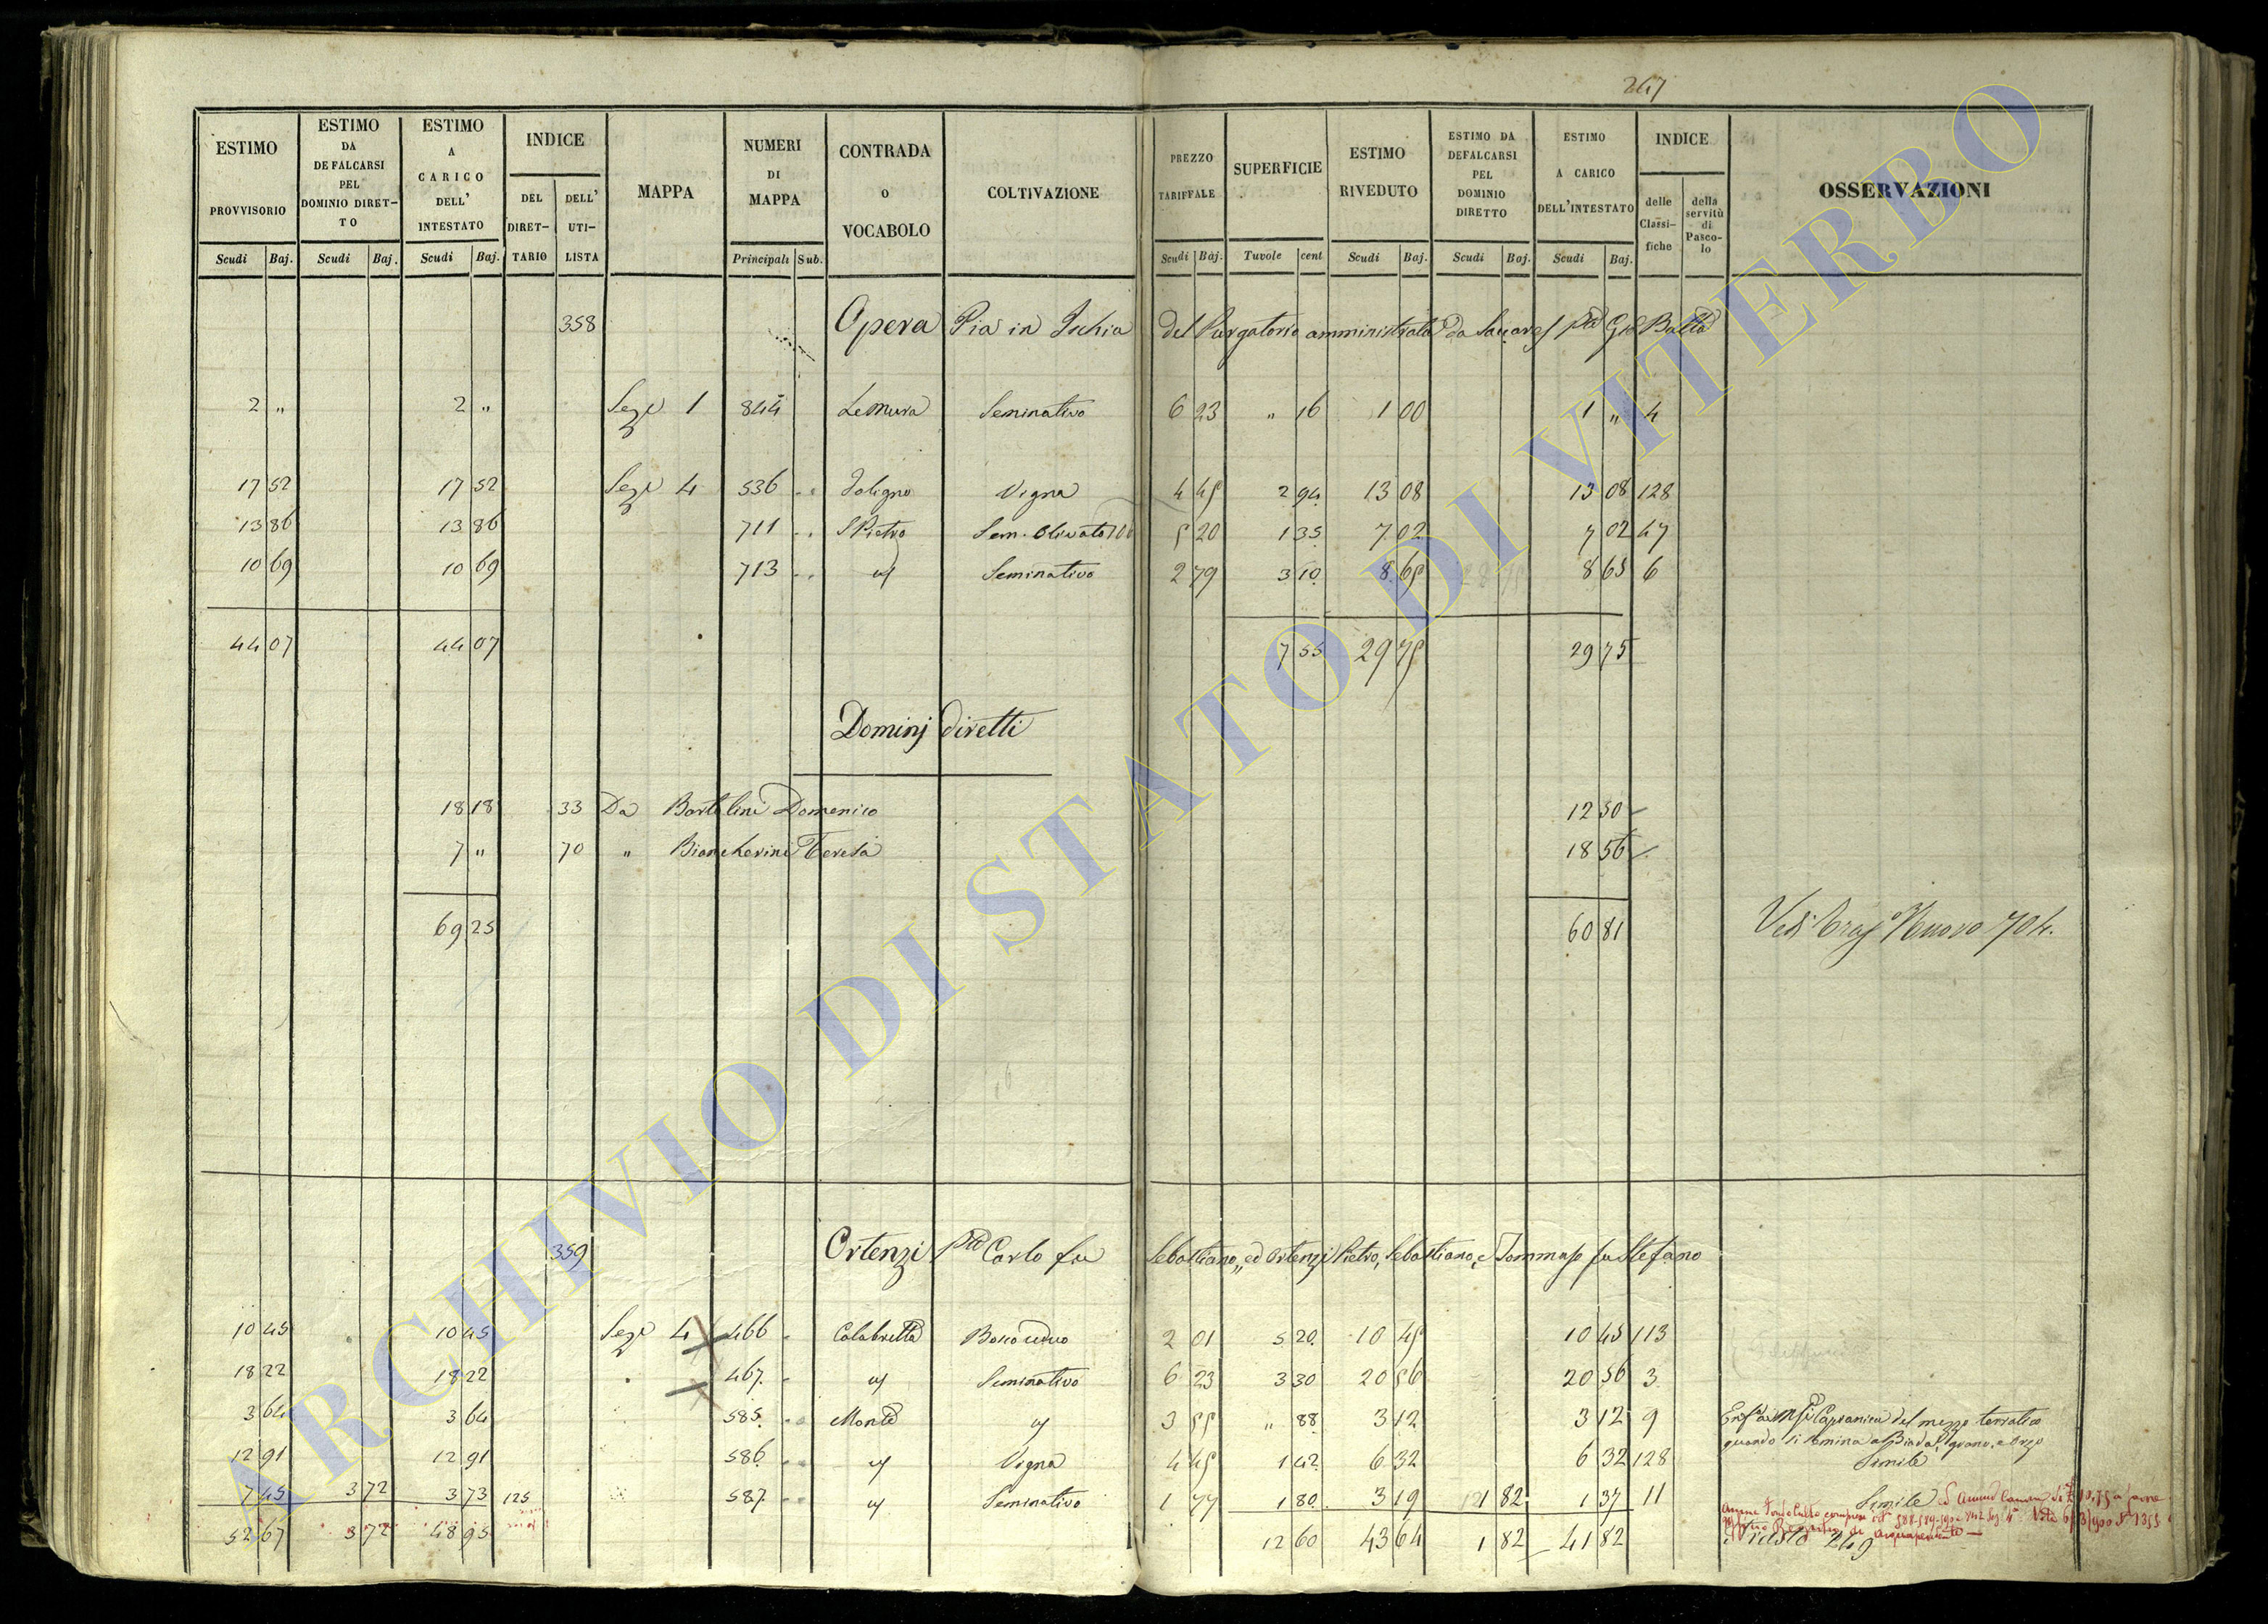 267
ESTIMO PROVVISORIO Scudi Baj. ESTIMO DA DEFALCARSI PEL DOMINIO DIRETTO Scudi Baj. ESTIMO A CARICO DELL' INTESTATO Scudi Baj. INDICE DEL DIRETTARIO DELL' UTILISTA MAPPA NUMERI DI MAPPA Principali Sub. CONTRADA o VOCABOLO COLTIVAZIONE PREZZO TARIFFALE Scudi Baj. SUPERFICIE Tavole cent ESTIMO RIVEDUTO Scudi Baj. ESTIMO DA DEFALCARSI PEL DOMINIO DIRETTO Scudi Baj. ESTIMO A CARICO DELL'INTESTATO Scudi Baj. INDICE delle Classifiche della servitù di Pascolo OSSERVAZIONI
358 Opera Pia in Ischia del Purgatorio amministrata da
2 " 2 " Sez.e 1 844 Le Mura Seminativo 6 23 " 16 1 00 1 " 4
17 52 17 52 Sez.e 4 536 Foligno Vigna 4 45 2 94 13 08 13 08 128
13 86 13 86 711 S Pietro Sem. Olivato 5 20 1 35 7 02 7 02 47
10 69 10 69 713 Seminativo 2 79 3 10 8 65 8 65 6
44 07 44 07 7 55 29 75 29 75
Dominj diretti
18 18 33 Da Bartolini Domenico 12 50
7 " 70 " Biancherini Teresa 18 56
69 25 60 81 Vedi Nuovo 704.
359 Ortenzi Carlo fu Sebastiano, ed Ortenzi Pietro, Sebastiano, e Tommaso fu Stefano
10 45 10 45 Sez.e 4 466 Calabretta Bosco ceduo 2 01 5 20 10 45 10 45 113
18 22 18 22 467 Seminativo 6 23 3 30 20 56 20 56 3
3 64 3 64 585 Monte 3 55 " 88 3 12 3 12 9 Capranica del mezzo terratico
quando si semina a Biada, grano, e Orzo
12 91 12 91 586 Vigna 4 45 1 42 6 32 6 32 128 Simile
7 45 3 72 3 73 125 587 Seminativo 1 77 1 80 3 19 1 82 1 37 11 Simile
52 67 3 72 48 95 12 60 43 64 1 82 41 82
249
ARCHIVIO DI STATO DI VITERBO